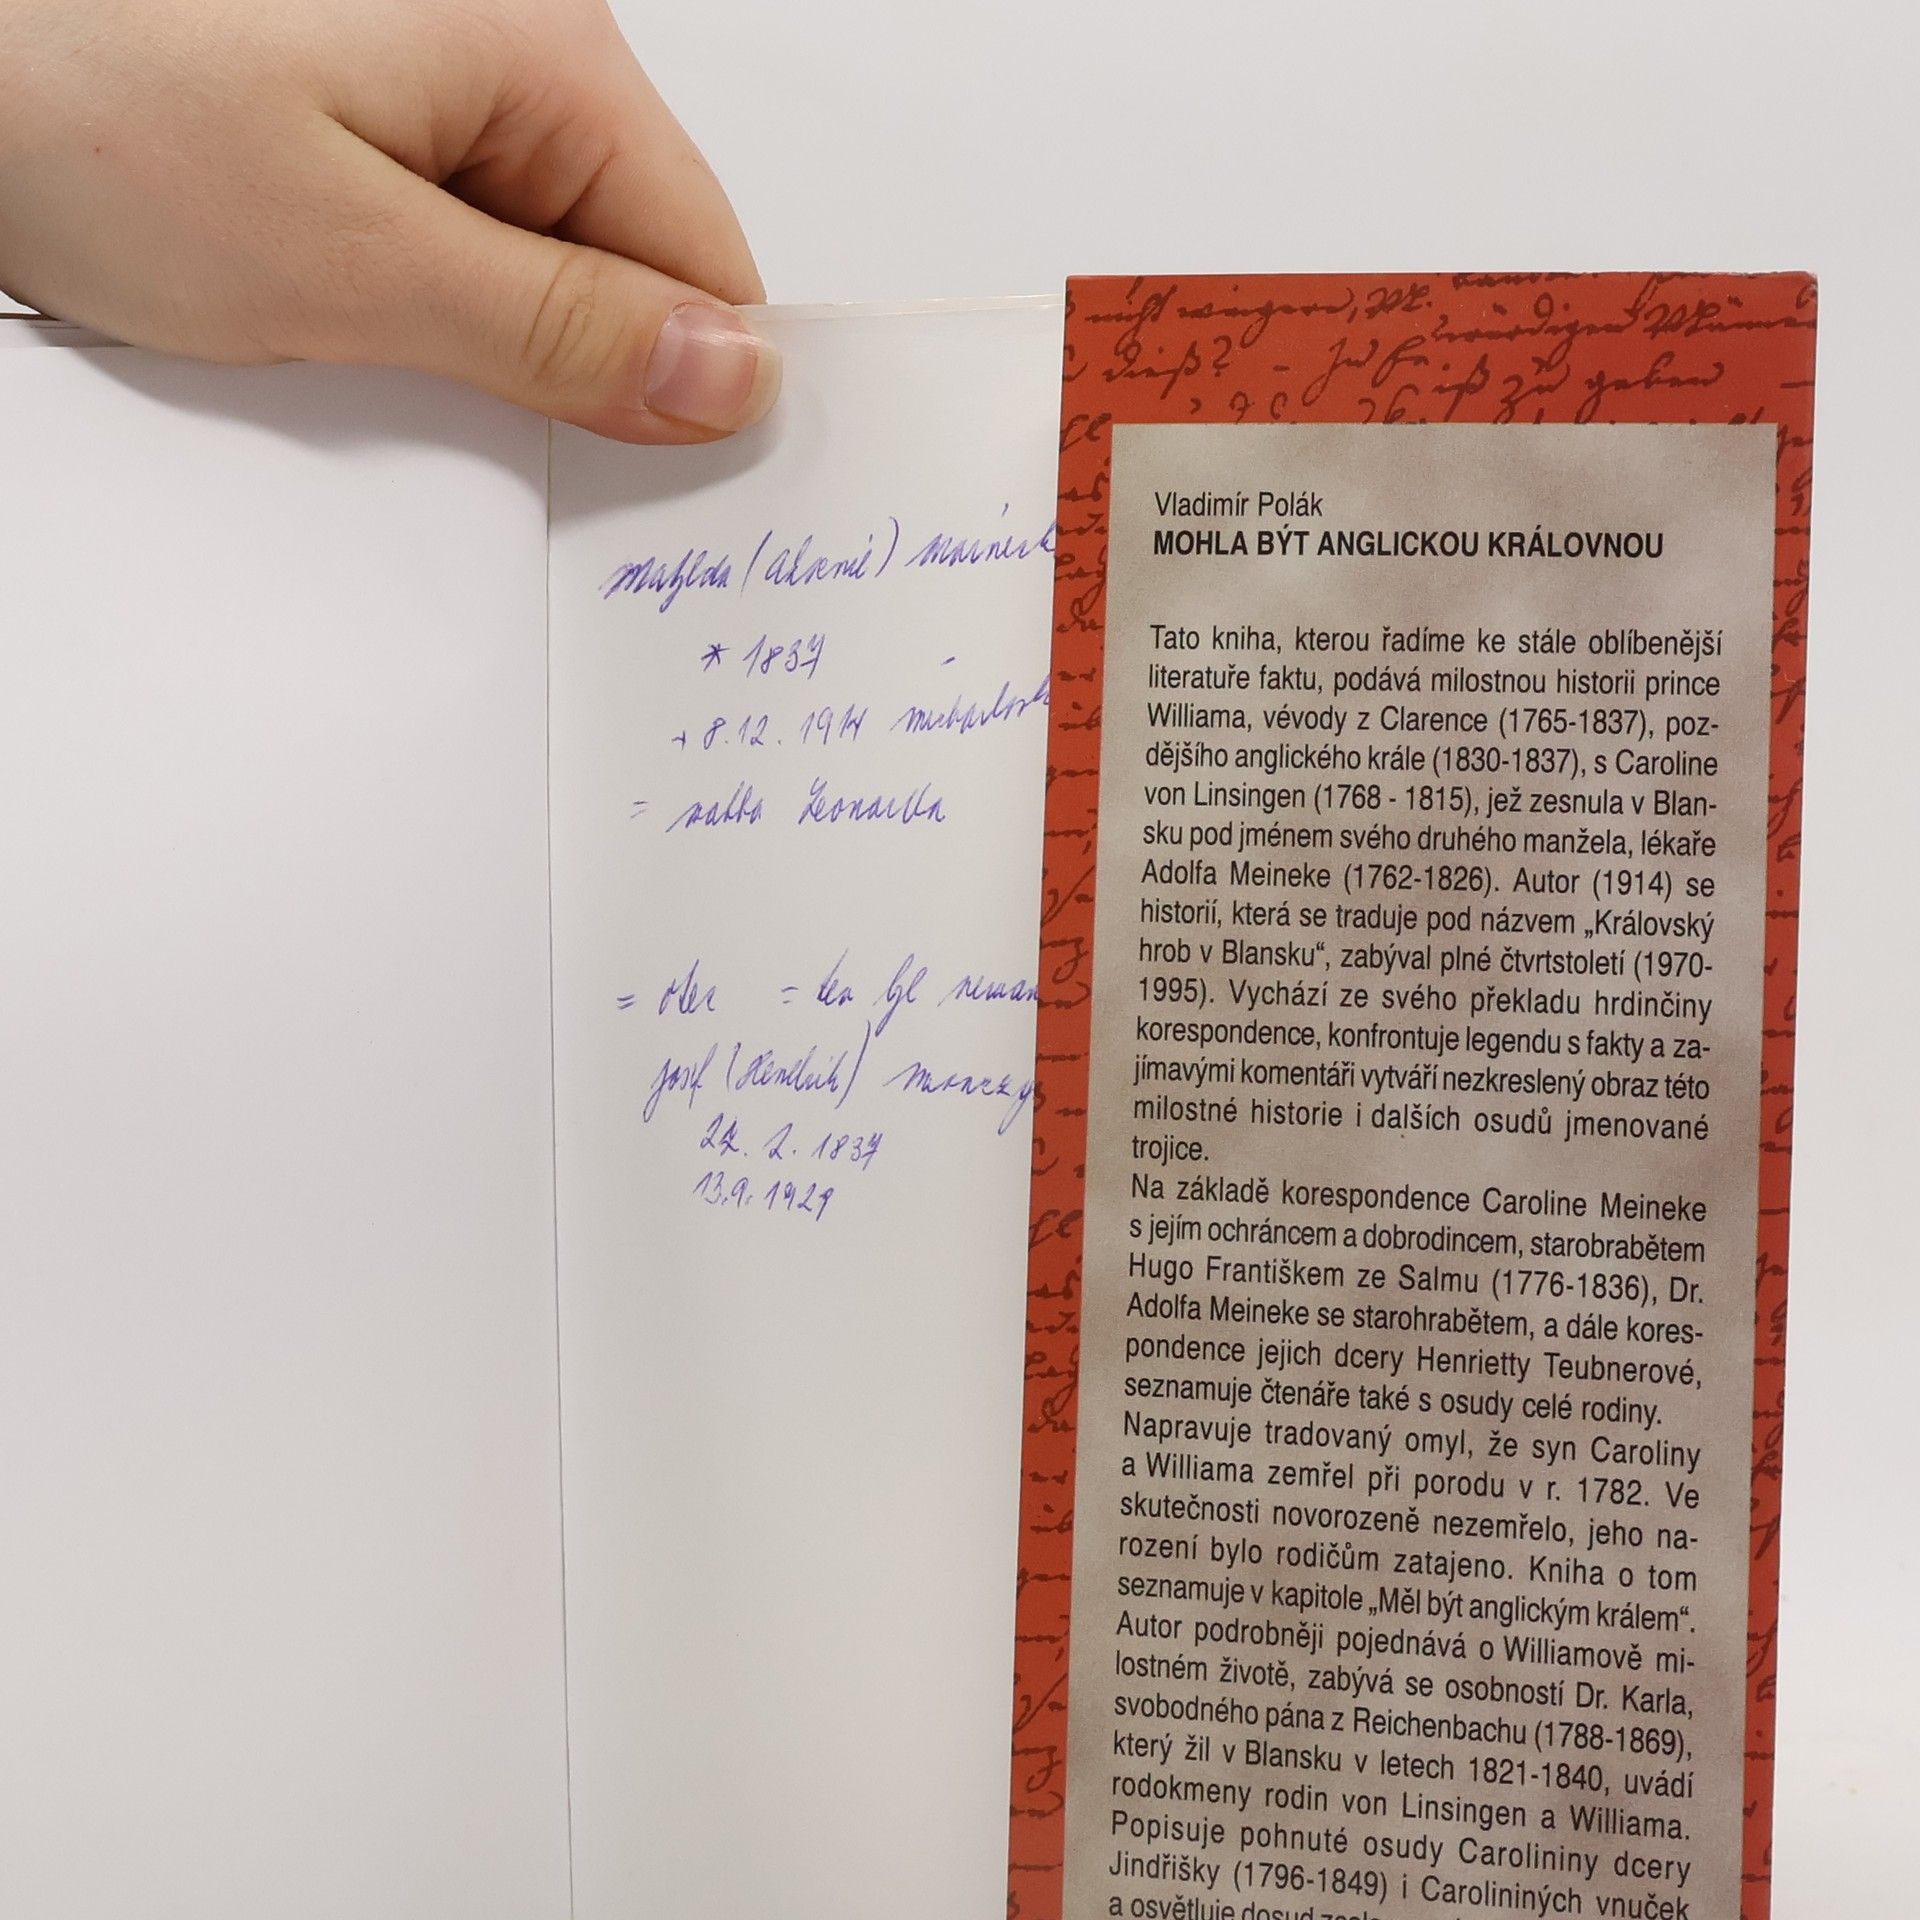 * 1837
8.12. 1914
= matka Leonarda
= otec = ten byl
Josef (Hendrik)
2. 1837
13.9. 1929
nicht
dieß? –
iß zu geben
Vladimír Polák
MOHLA BÝT ANGLICKOU KRÁLOVNOU
Tato kniha, kterou řadíme ke stále oblíbenější
literatuře faktu, podává milostnou historii prince
Williama, vévody z Clarence (1765-1837), poz-
dějšího anglického krále (1830-1837), s Caroline
von Linsingen (1768 - 1815), jež zesnula v Blan-
sku pod jménem svého druhého manžela, lékaře
Adolfa Meineke (1762-1826). Autor (1914) se
historií, která se traduje pod názvem „Královský
hrob v Blansku“, zabýval plné čtvrtstoletí (1970-
1995). Vychází ze svého překladu hrdinčiny
korespondence, konfrontuje legendu s fakty a za-
jímavými komentáři vytváří nezkreslený obraz této
milostné historie i dalších osudů jmenované
trojice.
Na základě korespondence Caroline Meineke
s jejím ochráncem a dobrodincem, starobrabětem
Hugo Františkem ze Salmu (1776-1836), Dr.
Adolfa Meineke se starohrabětem, a dále kores-
pondence jejich dcery Henrietty Teubnerové,
seznamuje čtenáře také s osudy celé rodiny.
Napravuje tradovaný omyl, že syn Caroliny
a Williama zemřel při porodu v r. 1782. Ve
skutečnosti novorozeně nezemřelo, jeho na-
rození bylo rodičům zatajeno. Kniha o tom
seznamuje v kapitole „Měl být anglickým králem“.
Autor podrobněji pojednává o Williamově mi-
lostném životě, zabývá se osobností Dr. Karla,
svobodného pána z Reichenbachu (1788-1869),
který žil v Blansku v letech 1821-1840, uvádí
rodokmeny rodin von Linsingen a Williama.
Popisuje pohnuté osudy Carolininy dcery
Jindřišky (1796-1849) i Carolininých vnuček
a osvětluje dosud